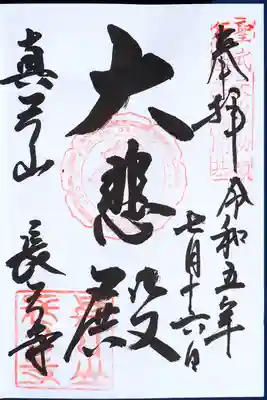 奉拝
令和五年
七月十六日
大悲殿
真弓山 長弓寺